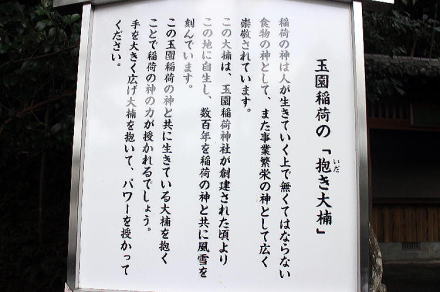 玉園稲荷の「抱き大楠」
いだ
稲荷の神は人が生きていく上で無くてはならない
食物の神として、また事業繁栄の神として広く
崇敬されています。
この大楠は、玉園稲荷神社が創建された頃より
この地に自生し、数百年を稲荷の神と共に風雪を
刻んでいます。
この玉園稲荷の神と共に生きている大楠を抱く
ことで稲荷の神の力が授かれるでしょう。
手を大きく広げ大楠を抱いて、パワーを授かって
ください。